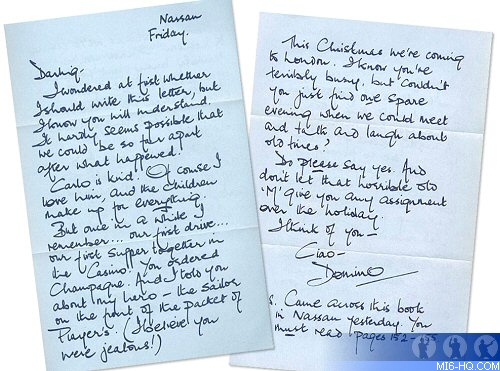 Nassau
Friday.
Darling -
I wondered at first whether
I should write this letter, but
I know you will understand.
It hardly seems possible that
we could be so far apart
after what happened!
Carlo is kind. Of course I
love him, and the children
make up for everything.
But once in a while I
remember... our first drive...
our first supper together in
the Casino. You ordered
Champagne. And I told you
about my hero - the sailor
on the front of the packet of
Player's. (I believe you
were jealous!)
This Christmas we're coming
to London. I know you're
terribly busy, but couldn't
you just find one spare
evening when we could meet
and talk and laugh about
old times?
Do please say yes. And
don't let that horrible old
'M' give you any assignment
over the holiday.
I think of you -
Ciao -
Domino
S. Came across this book
in Nassau yesterday. You
must read pages 152-
MI6-HQ.COM